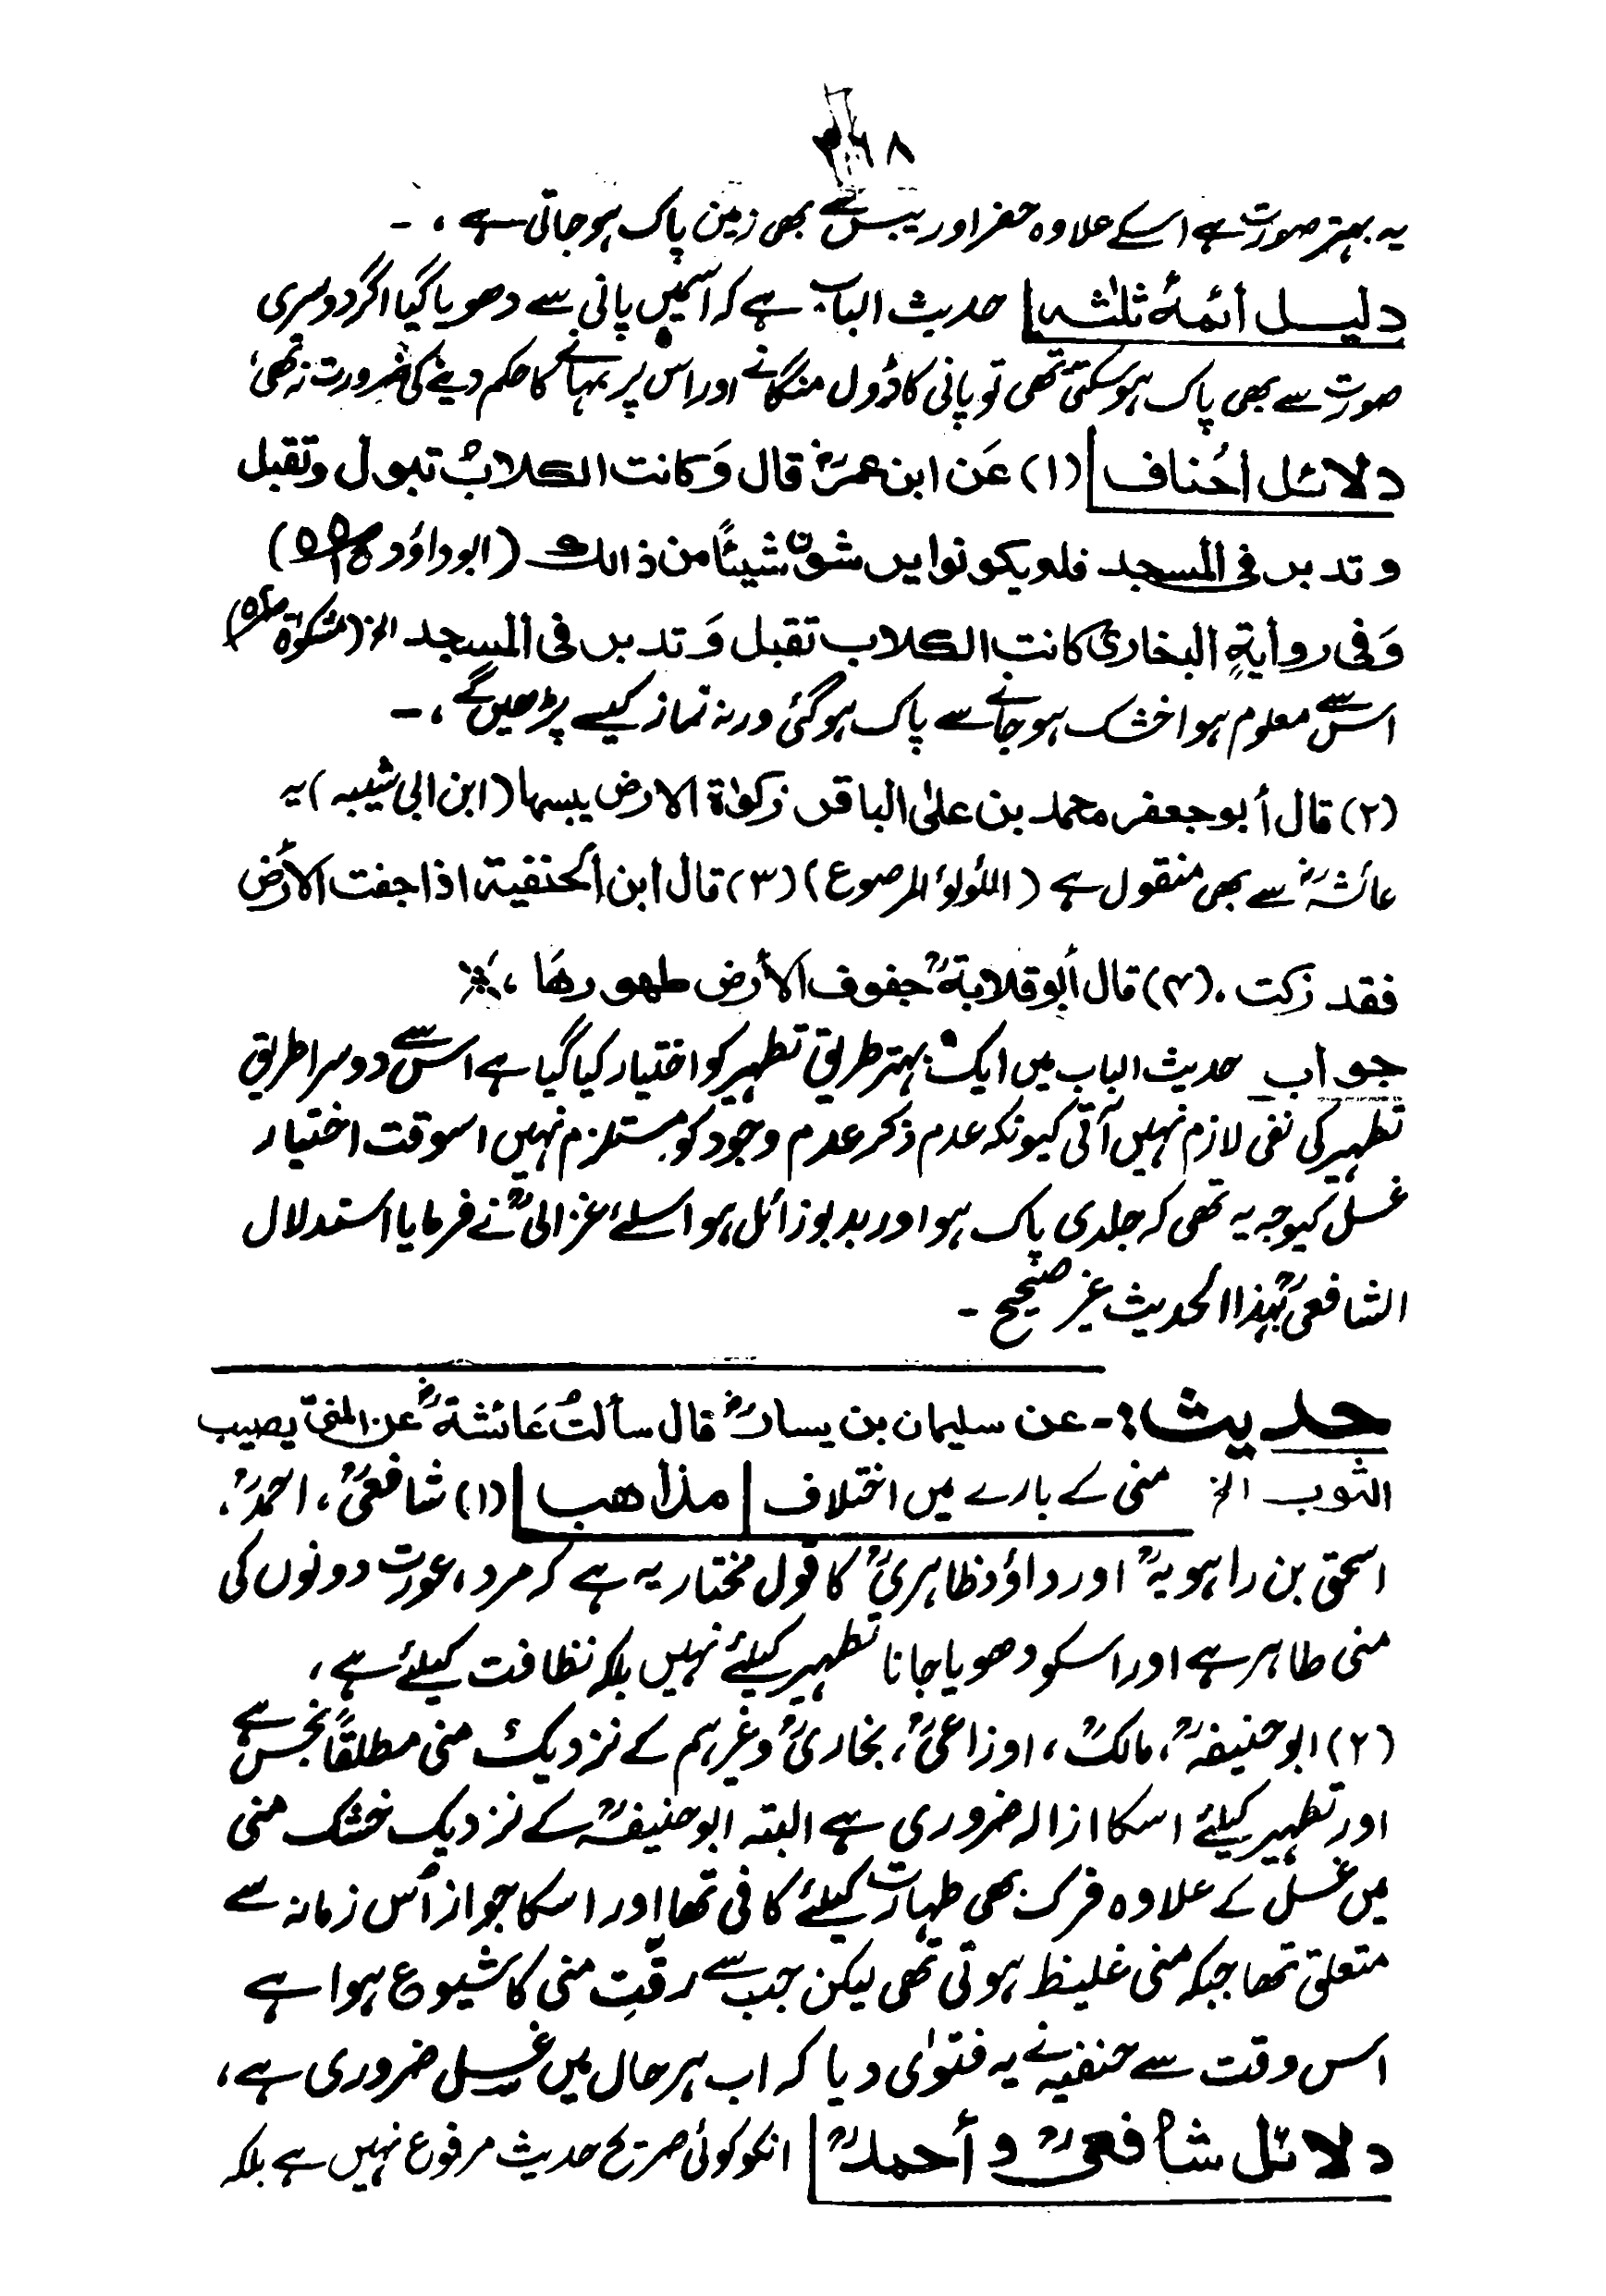 یہ بہتر صورت ہے اسکے علاوہ حفر اور یبس سے بھی زمین پاک ہوجاتی ہے ، ـ
دلیل أئمۂ ثلٰثہ حدیث الباب ہے کہ اسمیں پانی سے دھویا گیا اگر دوسری
صورت سے بھی پاک ہوسکتی تھی تو پانی کا ڈول منگانے اور اس پر بہانے کا حکم دینے کی ضرورت نہ تھی ،
دلائل أحناف (۱) عَن ابن عمرؓ قال وَکانت الکلابُ تبول وتقبل
وتدبر فی المسجد فلم یکونوا یرشون شیئاً من ذالک (ابوداؤد)
وَفی روایةٍ البخاری کانت الکلاب تقبل وَتدبر فی المسجد الخ (مشکوٰة)
اس سے معلوم ہوا خشک ہوجانے سے پاک ہوگئی ورنہ نماز کیسے پڑھیں گے ، ـ
(۲) قال أبوجعفر محمد بن علی الباقر زکوٰة الارض یبسها (ابن ابی شیبہ) یہ
عائشہؓ سے بھی منقول ہے (اللؤلؤ المرصوع) (۳) قال ابن الحنفیة اذا جفت الأرض
فقد زکت ۔ (۴) قال أبو قلابةؒ جفوف الأرض طهورها ،
جواب حدیث الباب میں ایک بہتر طریق تطہیر کو اختیار کیا گیا ہے اس سے دوسرا طریق
تطہیر کی نفی لازم نہیں آتی کیونکہ عدم ذکر عدم وجود کو مستلزم نہیں اسوقت اختیار
غسل کیوجہ یہ تھی کہ جلدی پاک ہو اور بدبو زائل ہو اسلئے غزالیؒ نے فرمایا استدلال
الشافعیؒ بہذا الحدیث غیر صحیح ـ
حدیث :ـ عن سلیمان بن یسارؓ قال سألتُ عَائشةؓ عن المنی یصیب
الثوب الخ منی کے بارے میں اختلاف مذاهب (۱) شافعیؒ ، احمدؒ ،
اسحٰق بن راہویہؒ اور داؤد ظاہریؒ کا قول مختار یہ ہے کہ مرد ، عورت دونوں کی
منی طاہر ہے اور اسکو دھویا جانا تطہیر کیلئے نہیں بلکہ نظافت کیلئے ہے ،
(۲) ابوحنیفہؒ ، مالکؒ ، اوزاعیؒ ، بخاریؒ وغیرہم کے نزدیک منی مطلقاً نجس ہے
اور تطہیر کیلئے اسکا ازالہ ضروری ہے البتہ ابوحنیفہؒ کے نزدیک خشک منی
میں غسل کے علاوہ فرک بھی طہارت کیلئے کافی تھا اور اسکا جواز اُس زمانہ سے
متعلق تھا جبکہ منی غلیظ ہوتی تھی لیکن جب سے رقّتِ منی کا شیوع ہوا ہے
اس وقت سے حنفیہ نے یہ فتوٰی دیا کہ اب ہر حال میں غسل ضروری ہے ،
دلائل شافعیؒ و أحمدؒ انکو کوئی صریح حدیث مرفوع نہیں ہے بلکہ